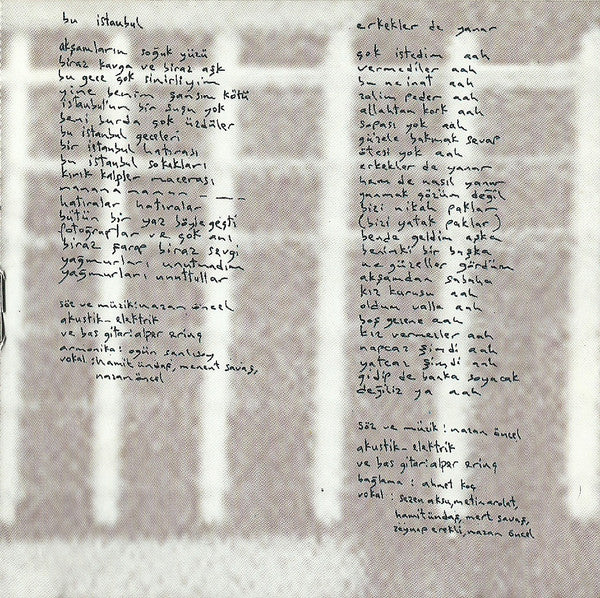 bu istanbul
akşamların soğuk yüzü
biraz kavga ve biraz aşk
bu gece çok sinirliyim
yine benim şansım kötü
istanbul'un bir suçu yok
beni burda çok üzdüler
bu istanbul geceleri
bir istanbul hatırası
bu istanbul sokakları
kırık kalpler macerası
nanana nanan _ _ _ _
hatıralar hatıralar
bütün bir yaz böyle geçti
fotoğraflar ve çok anı
biraz şarap biraz sevgi
yağmurları unutmadım
yağmurları unuttular
söz ve müzik: nazan öncel
akustik - elektrik
ve bas gitar: alper ering
armonika: ogün sanlısoy
vokal: hamit ündaş, menent savaş,
nazan öncel
erkekler de yanar
çok istedim aah
vermediler aah
bu ne inat aah
zalim peder aah
allahtan kork aah
sopası yok aah
güzele bakmak sevap
ötesi yok aah
erkekler de yanar
hem de nasıl yanar
yanmak gözün değil
bizi nikah paklar
(bizi yatak paklar)
bende geldim aşka
beninki bir başka
ne güzeller gördüm
akşamdan sabaha
kız kurusu aah
oldum valla aah
boş gezene aah
kız vermezler aah
napcaz şimdi aah
yatcaz şimdi aah
gidip de banka soyacak
değiliz ya aah
söz ve müzik: nazan öncel
akustik - elektrik
ve bas gitar: alper ering
bağlama: ahmet koç
vokal: sezen aksu, metin arolat,
hamit ündaş, mert savaş,
zeynep erekli, nazan öncel